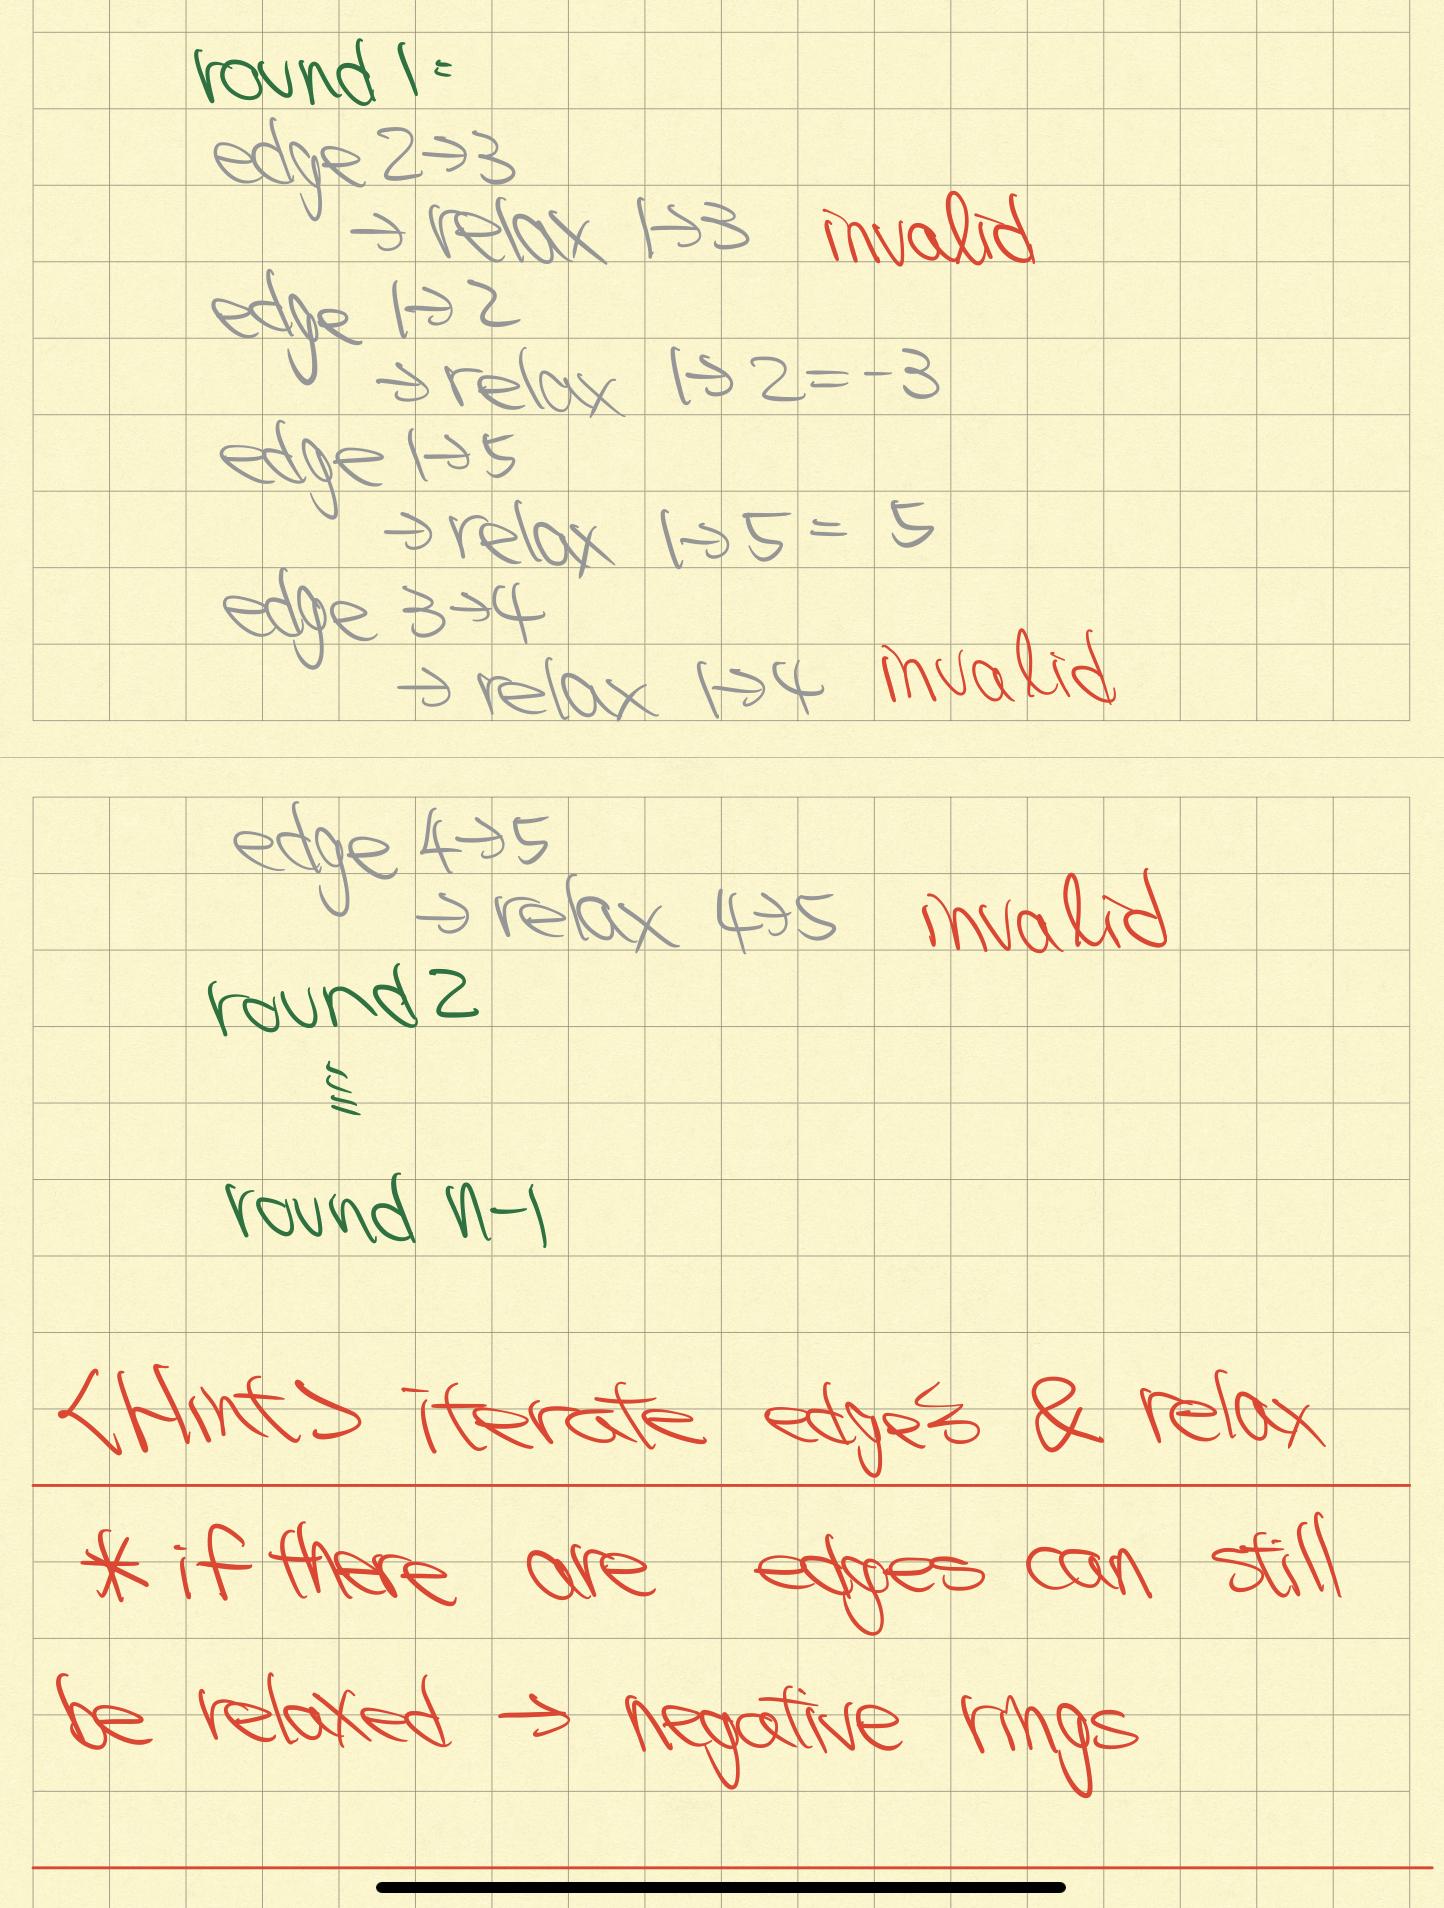 round 1 =
edge 2→3
→ relax 1→3 invalid
edge 1→2
→ relax 1→2 = -3
edge 1→5
→ relax 1→5 = 5
edge 3→4
→ relax 1→4 invalid
edge 4→5
→ relax 4→5 invalid
round 2
round n-1
<Hint> iterate edges & relax
* if there are edges can still
be relaxed → negative rings